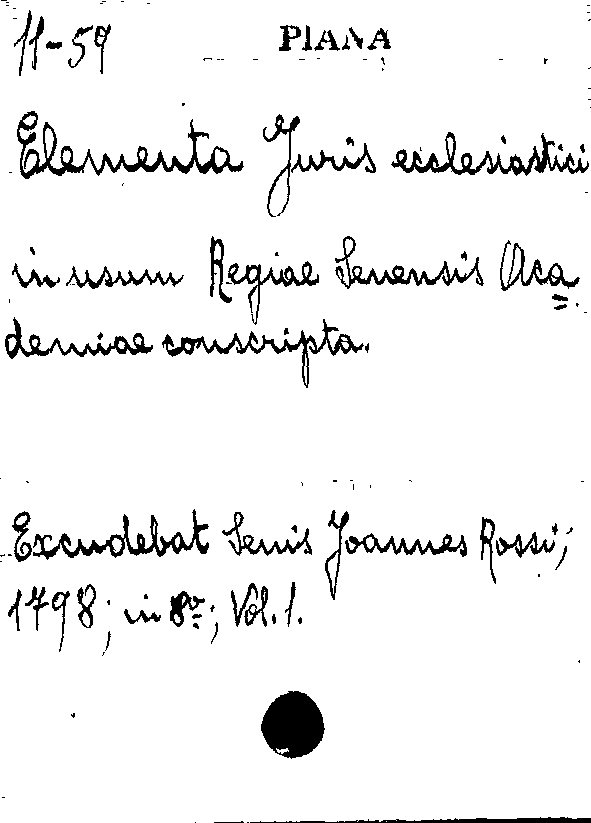 11-59 PIANA
Elementa Juris ecclesiastici
in usum Regiae Senensis Aca=
demiae conscripta.
Excudebat Senis Joannes Rossi;
1798; in 8º; Vol. 1.